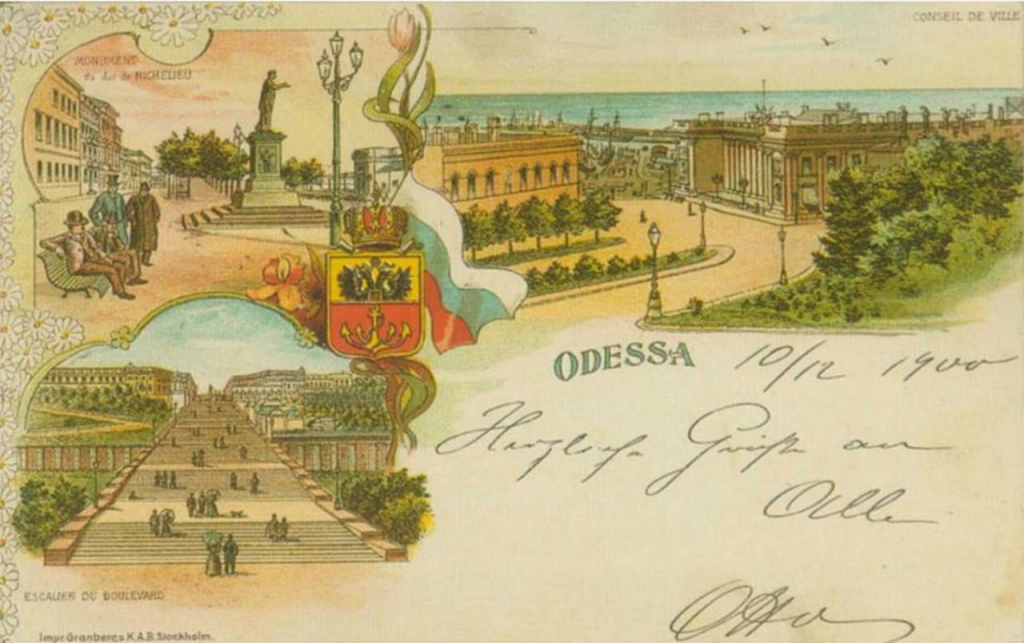 CONSEIL DE VILLE
MONUMENT
du duc de RICHELIEU
ODESSA 10/12 1900
Herzliche Grüße an
Alle
Otto
ESCALIER DU BOULEVARD
Impr. Granbergs K.A.B. Stockholm.